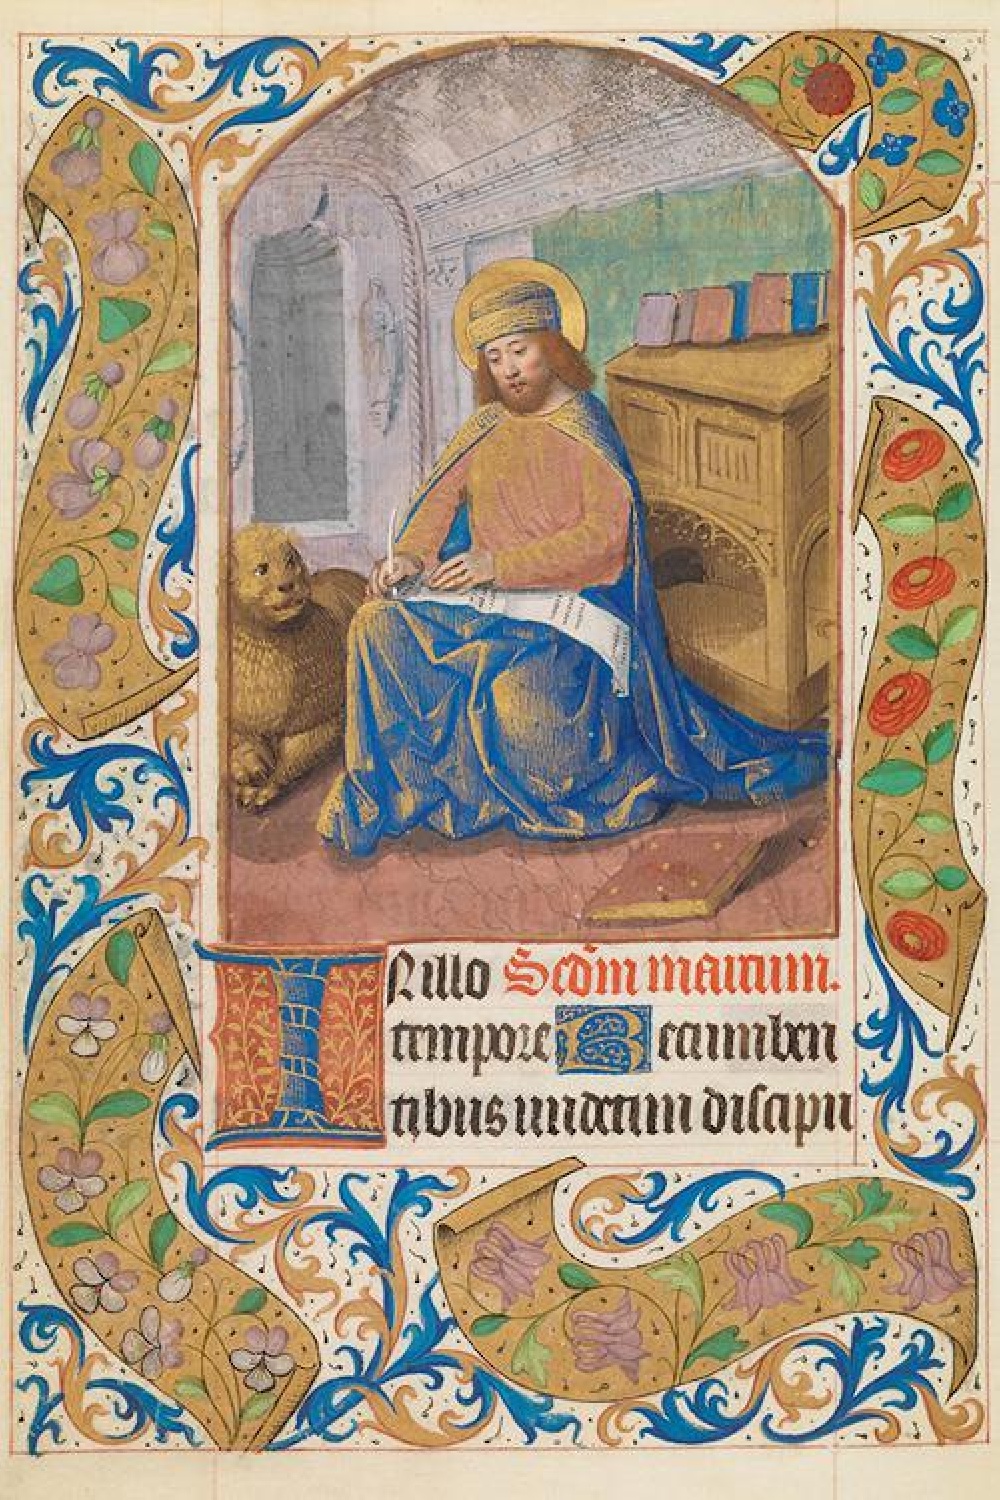 In illo Scd̄m marcum.
tempore Recumben
tibus undecim discipu